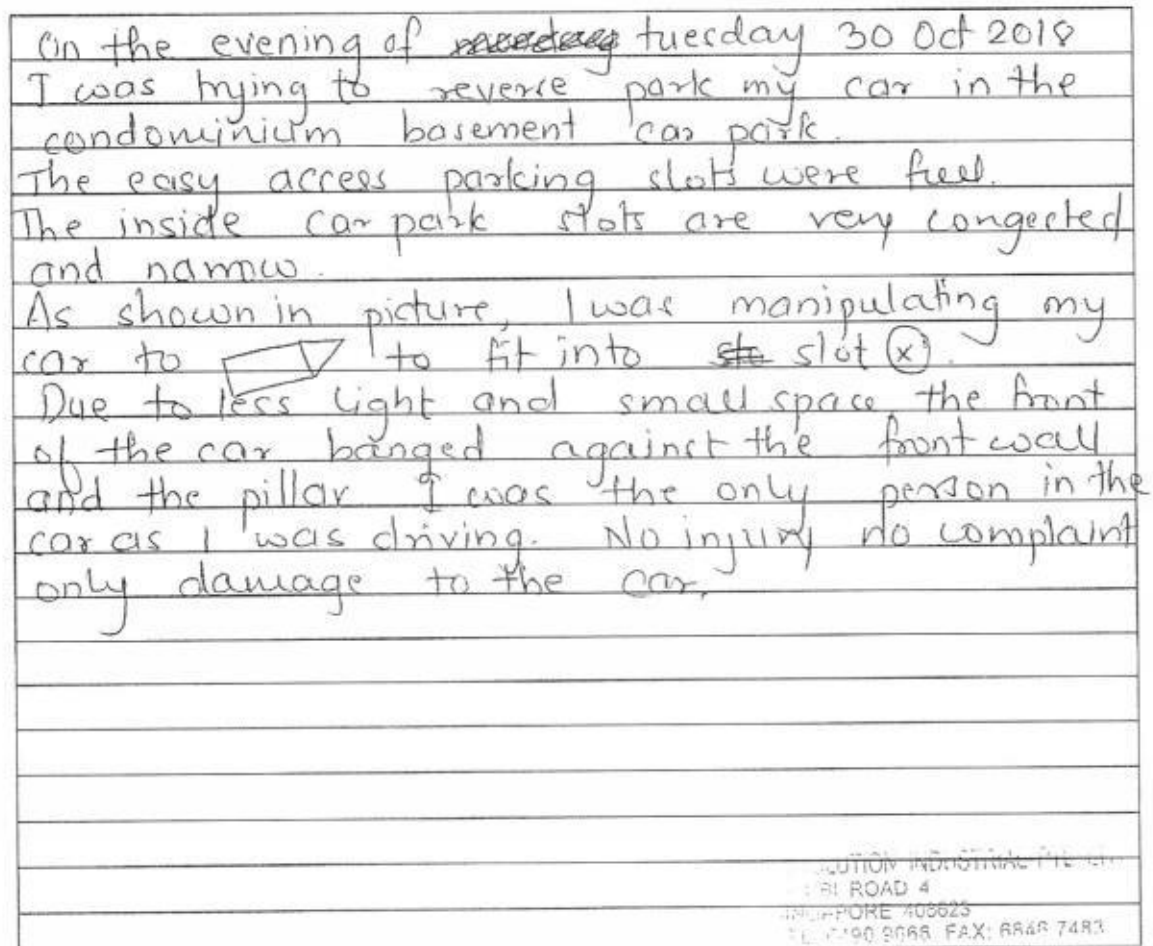 On the evening of tuesday 30 Oct 2018
I was trying to reverse park my car in the
condominium basement car park.
The easy access parking slots were full.
The inside car park slots are very congested
and narrow.
As shown in picture, I was manipulating my
car to to fit into slot x.
Due to less light and small space the front
of the car banged against the front wall
and the pillar I was the only person in the
car as I was driving. No injury no complaint
only damage to the car.
INDUSTRIAL PTE
ROAD 4
FAX: 6846 7483